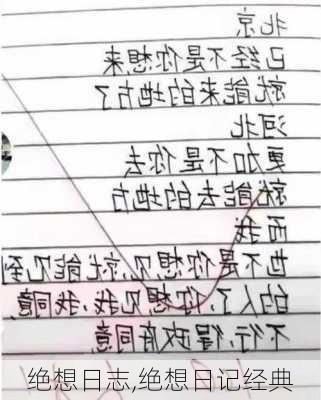 北京
已经不是你想来
就能来的地方了
河北
更加不是你去
就能去的地方
而我
也不是你想见,就能见到
的人了,你想见我,我同意
不行,得政府同意
绝想日志,绝想日记经典